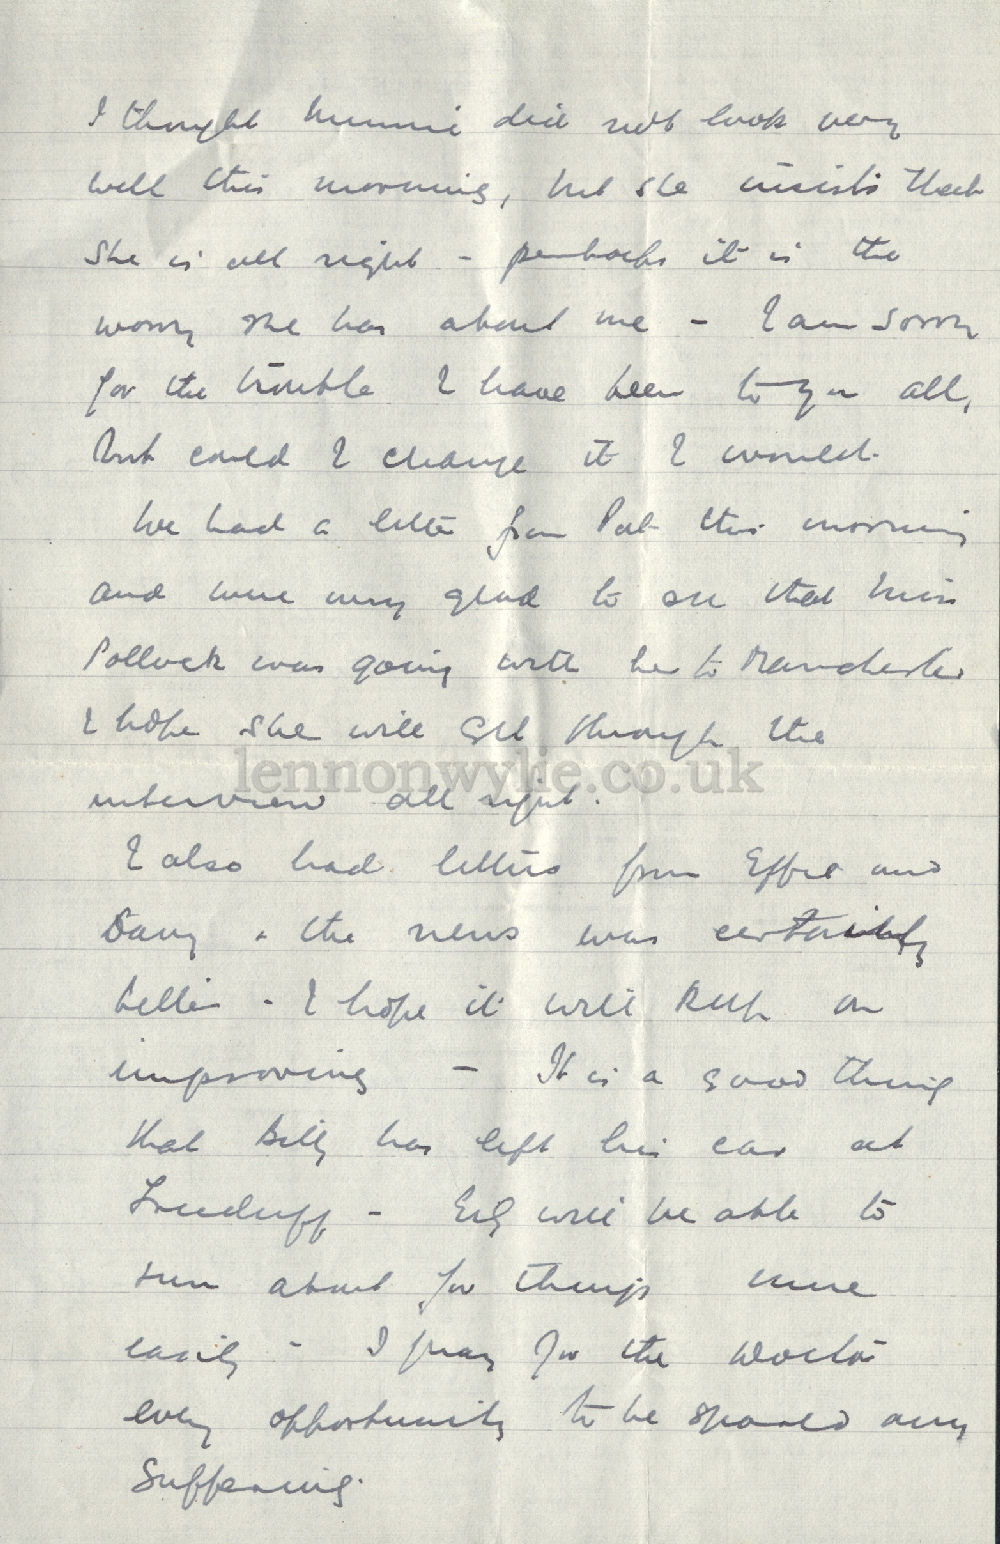 I thought Minnie did not look very
well this morning, but she insists that
she is all right - perhaps it is the
worry she has about me - I am sorry
for the trouble I have been to you all,
but could I change it I would.
We had a letter from Pat this morning
and were very glad to see that Miss
Pollock was going with her to Manchester
I hope she will get through the
lennonwylie.co.uk
interview all right.
I also had letters from Effie and
Davy & the news was certainly
better - I hope it will keep on
improving - It is a good thing
that Billy has left his car at
- will be able to
run about for things more
easily - I pray for the Doctor
every opportunity to be spared any
suffering.